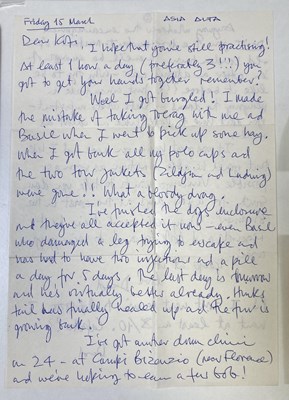 Friday 15 March ASIA ALTA
Dear Kit, I hope that you're still practising!
At least 1 hour a day (preferably 3!!!) you
got to get your hands together remember?
Well I got burgled! I made
the mistake of taking with me ad
Basil when I went to pick up some hay.
When I got back all my polo cups ad
the two tour jackets (Zildjian and Ludwig)
were gone!! What a bloody drag.
I've finished the dogs enclosure
and they've all accepted it now - even Basil
who damaged a leg trying to escape and
has had to have two injections and a pill
a day for 5 days. The last day is tomorrow
and he's virtually better already. thinks
tail has finally healed up and the fur is
growing back.
I've got another drum clinic
on 24 - at Campi Bizenzio (near Florence)
and we're hoping to earn a few bob!